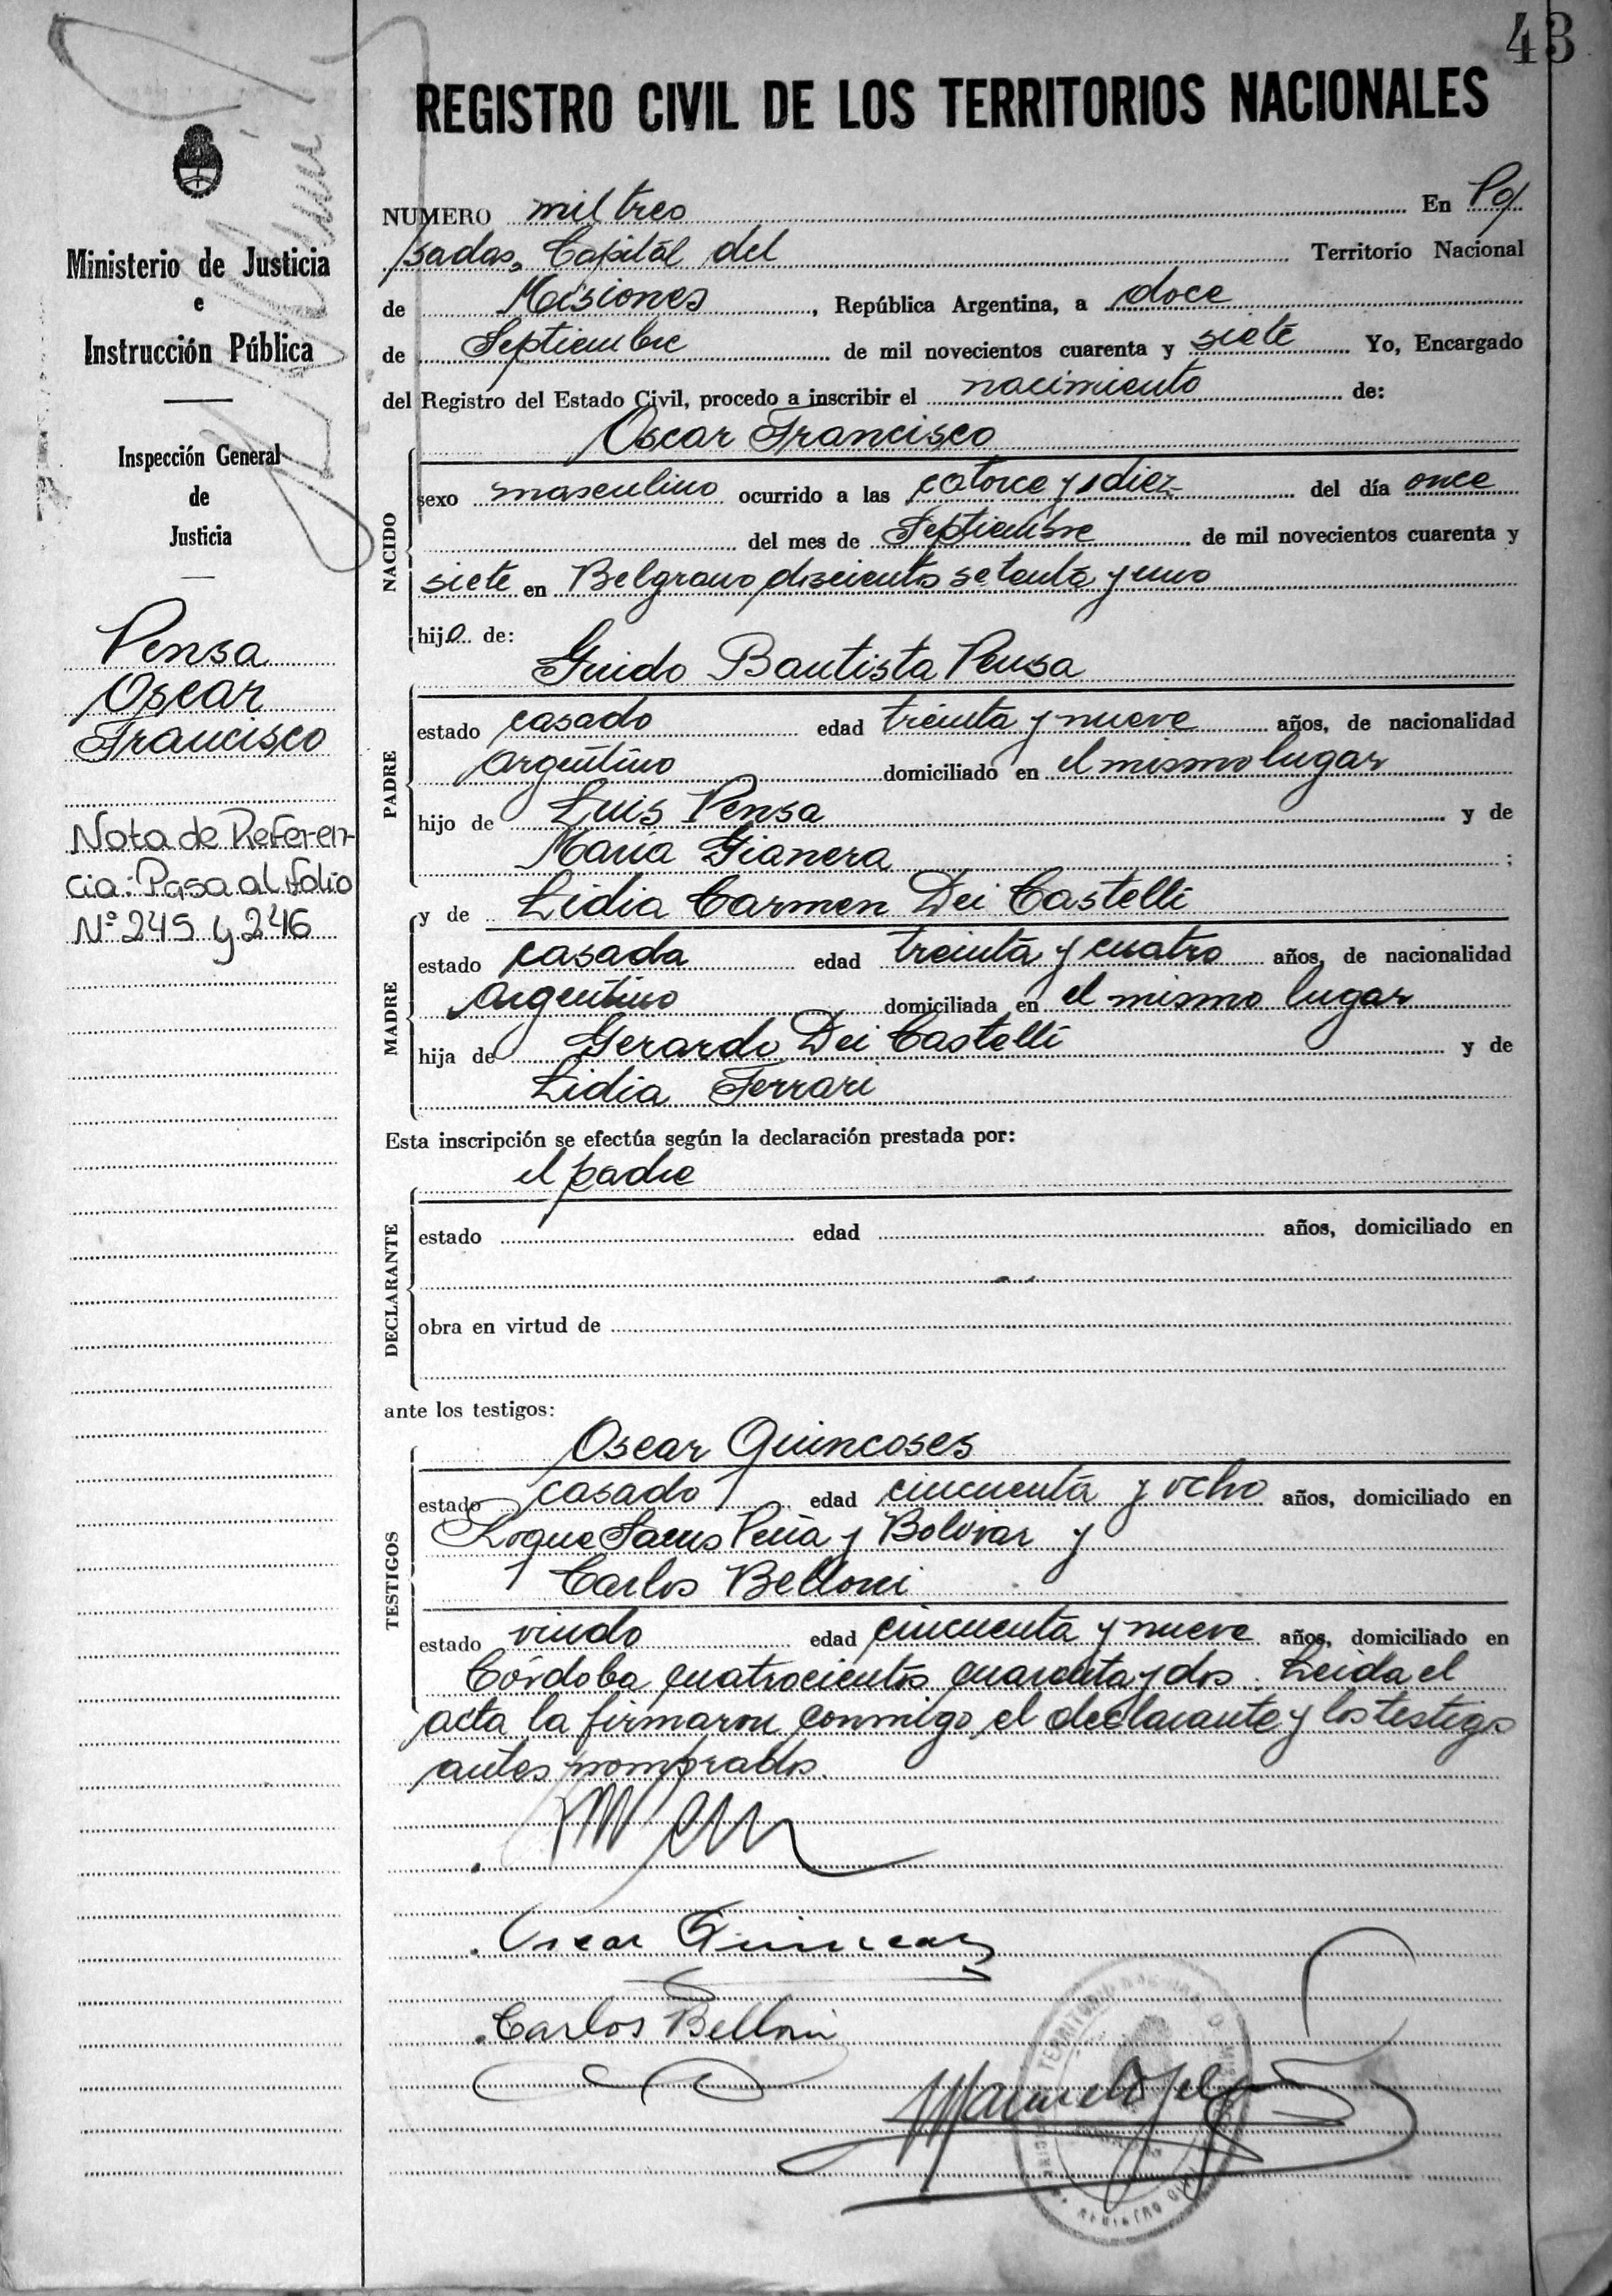 43
REGISTRO CIVIL DE LOS TERRITORIOS NACIONALES
Ministerio de Justicia
e
Instrucción Pública
Inspección General
de
Justicia
Pensa
Oscar
Francisco
Nota de Referen-
cia: Pasa al folio
Nº 245 y 246
NUMERO mil tres En Po/
sadas, Capital del Territorio Nacional
de Misiones, República Argentina, a doce
de Septiembre de mil novecientos cuarenta y siete Yo, Encargado
del Registro del Estado Civil, procedo a inscribir el nacimiento de:
Oscar Francisco
NACIDO
sexo masculino ocurrido a las catorce y diez del día once
del mes de Septiembre de mil novecientos cuarenta y
siete en Belgrano doscientos setenta y uno
hijo de:
Guido Bautista Pensa
PADRE
estado casado edad treinta y nueve años, de nacionalidad
argentino domiciliado en el mismo lugar
hijo de Luis Pensa y de
María Gianera ;
y de Lidia Carmen Dei Castelli
MADRE
estado casada edad treinta y cuatro años, de nacionalidad
argentino domiciliada en el mismo lugar
hija de Gerardo Dei Castelli y de
Lidia Ferrari
Esta inscripción se efectúa según la declaración prestada por:
el padre
DECLARANTE
estado edad años, domiciliado en
obra en virtud de
ante los testigos:
Oscar Quincoses
TESTIGOS
estado casado edad cincuenta y ocho años, domiciliado en
Roque Saens Peña y Bolivar y
Carlos Belloni
estado viudo edad cincuenta y nueve años, domiciliado en
Córdoba cuatrocientos cuarenta y dos. Leida el
acta la firmaron conmigo el declarante y los testigos
antes nombrados.
Oscar Quincoses
Carlos Belloni